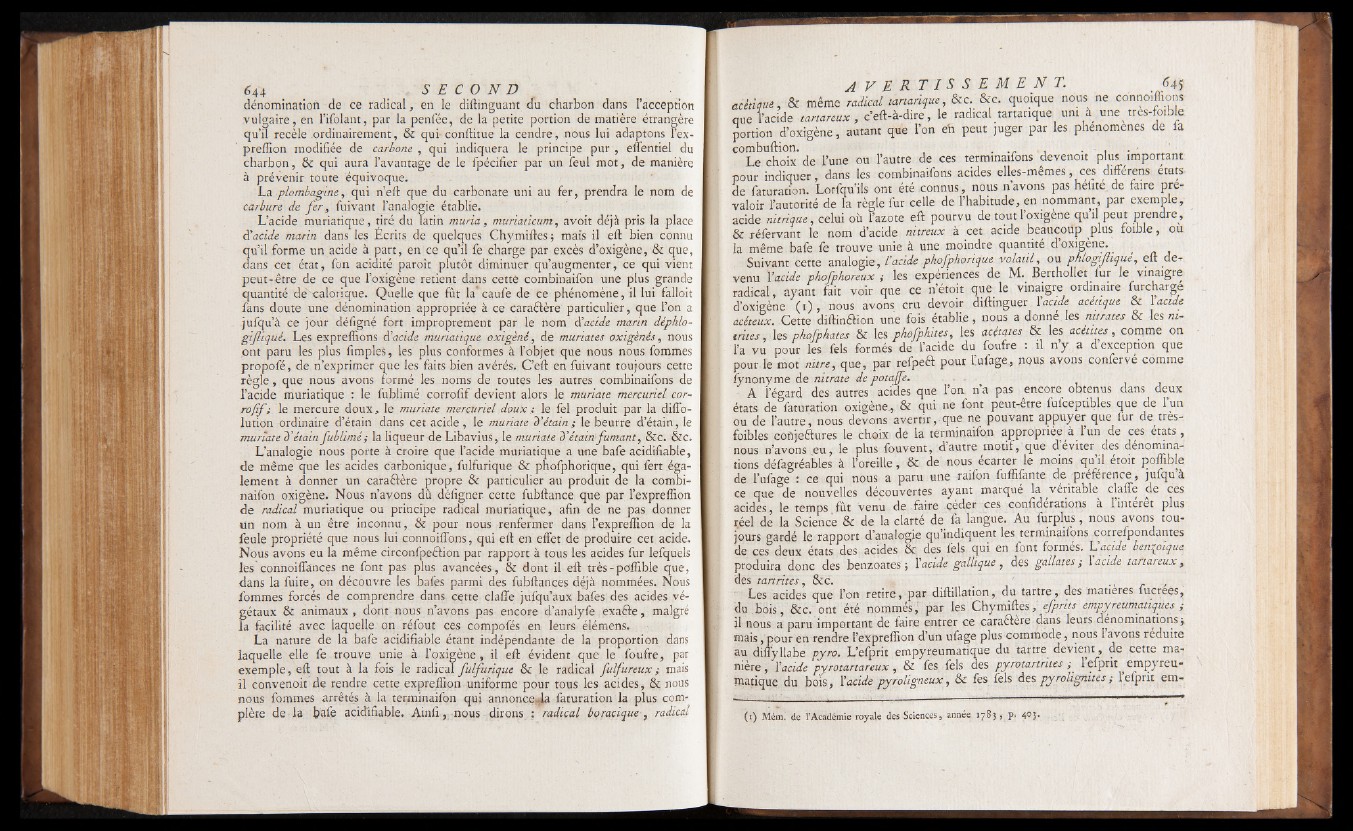 644 SECOND
dénomination de ce radical, en le diſtinguant du charbon dans l'acception
vulgaire, en l'iſolant, par la penſée, de la petite portion de matière étrangère
qu'il recèle ordinairement, & qui conſtitue la cendre, nous lui adaptons l'ex-
preſſion modifiée de carbone, qui indiquera le principe pur, eſſentiel du
charbon, & qui aura l'avantage de le ſpécifier par un ſeul mot, de manière
à prévenir toute équivoque.
La plombagine, qui n'eſt que du carbonate uni au fer, prendra le nom de
carbure de fer, ſuivant l'analogie établie.
L'acide muriatique, tiré du latin muria, muriaticum, avoit déjà pris la place
d'acide marin dans les Écrits de quelques Chymiſtes; mais il eſt bien connu
qu'il forme un acide à part, en ce qu'il ſe charge par excès d'oxigène, & que,
dans cet état, ſon acidité paroît plutôt diminuer qu'augmenter, ce qui vient
peut-être de ce que l'oxigène retient dans cette combinaiſon une plus grande
quantité de calorique. Quelle que fût la cauſe de ce phénomène, il lui falloit
ſans doute une dénomination appropriée à ce caractère particulier, que l'on a
juſqu'à ce jour déſigné fort improprement par le nom d'acide marin déphlo-
giſtiqué. Les expreſſions d'acide muriatique oxigéné, de muriates oxigénés, nous
ont paru les plus ſimples, les plus conformes à l'objet que nous nous ſommes
propoſé, de n'exprimer que les faits bien avérés. C'eſt en ſuivant toujours cette
règle, que nous avons formé les noms de toutes les autres combinaiſons de
l'acide muriatique : le ſublimé corroſif devient alors le muriate mercuriel cor-
roſif; le mercure doux, le muriate mercuriel doux; le ſel produit par la diſſo-
lution ordinaire d'étain dans cet acide, le muriate d'étain; le beurre d'étain, le
muriate d'étain ſublimé; la liqueur de Libavius, le muriate d'étain fumant, &c. &c.
L'analogie nous porte à croire que l'acide muriatique a une baſe acidifiable,
de même que les acides carbonique, ſulfurique & phoſphorique, qui ſert éga-
lement à donner un caractère propre & particulier au produit de la combi-
naiſon oxigène. Nous n'avons dû déſigner cette ſubſtance que par l'expreſſion
de radical muriatique ou principe radical muriatique, afin de ne pas donner
un nom à un être inconnu, & pour nous renfermer dans l'expreſſion de la
ſeule propriété que nous lui connoiſſons, qui eſt en effet de produire cet acide.
Nous avons eu la même circonſpection par rapport à tous les acides ſur leſquels
les connoiſſances ne ſont pas plus avancées, & dont il eſt très-poſſible que,
dans la ſuite, on découvre les baſes parmi des ſubſtances déjà nommées. Nous
ſommes forcés de comprendre dans cette claſſe juſqu'aux baſes des acides vé-
gétaux & animaux, dont nous n'avons pas encore d'analyſe exacte, malgré
la facilité avec laquelle on réſout ces compoſés en leurs élémens.
La nature de la baſe acidifiable étant indépendante de la proportion dans
laquelle elle ſe trouve unie à l'oxigène, il eſt évident que le ſoufre, par
exemple, eſt tout à la fois le radical ſulfurique & le radical ſulfureux; mais
il convenoit de rendre cette expreſſion uniforme pour tous les acides, & nous
nous ſommes arrêtés à la terminaiſon qui annonce la ſaturation la plus com-
plète de la baſe acidifiable. Ainſi, nous dirons : radical boracique, radical
AVERTISSEMENT. 645
acétique, & même radical tartarique, &c. &c. quoique nous ne connoiſſions
que l'acide tartareux, c'eſt-à-dire, le radical tartarique uni à une très-foible
portion d'oxigène, autant que l'on en peut juger par les phénomènes de ſa
combuſtion.
Le choix de l'une ou l'autre de ces terminaiſons devenoit plus important
pour indiquer, dans les combinaiſons acides elles-mêmes, ces différens états
de ſaturation. Lorſqu'ils ont été connus, nous n'avons pas héſité de faire pré-
valoir l'autorité de la règle ſur celle de l'habitude, en nommant, par exemple,
acide nitrique, celui où l'azote eſt pourvu de tout l'oxigène qu'il peut prendre,
& réſervant le nom d'acide nitreux à cet acide beaucoup plus foible, où
la même baſe ſe trouve unie à une moindre quantité d'oxigène.
Suivant cette analogie, l'acide phoſphorique volatil, ou phlogiſtiqué, eſt de-
venu l'acide phoſphoreux; les expériences de M. Berthollet ſur le vinaigre
radical, ayant fait voir que ce n'étoit que le vinaigre ordinaire ſurchargé
d'oxigène (1), nous avons cru devoir diſtinguer l'acide acétique & l'acide
acéteux. Cette diſtinction une fois établie, nous a donné les nitrates & les ni-
trites, les phoſphates & les phoſphites, les acétates & les acétites, comme on
l'a vu pour les ſels formés de l'acide du ſoufre : il n'y a d'exception que
pour le mot nitre, que, par reſpect pour l'uſage, nous avons conſervé comme
ſynonyme de nitrate de potaſſe.
A l'égard des autres acides que l'on n'a pas encore obtenus dans deux
états de ſaturation oxigène, & qui ne ſont peut-être ſuſceptibles que de l'un
ou de l'autre, nous devons avertir, que ne pouvant appuyer que ſur de très-
foibles conjectures le choix de la terminaiſon appropriée à l'un de ces états,
nous n'avons eu, le plus ſouvent, d'autre motif, que d'éviter des dénomina-
tions déſagréables à l'oreille, & de nous écarter le moins qu'il étoit poſſible
de l'uſage : ce qui nous a paru une raiſon ſuffiſante de préférence, juſqu'à
ce que de nouvelles découvertes ayant marqué la véritable claſſe de ces
acides, le temps fût venu de faire céder ces conſidérations à l'intérêt plus
réel de la Science & de la clarté de ſa langue. Au ſurplus, nous avons tou-
jours gardé le rapport d'analogie qu'indiquent les terminaiſons correſpondantes
de ces deux états des acides & des ſels qui en ſont formés. L'acide benzoique
produira donc des benzoates; l'acide gallique, des gallates; l'acide tartareux,
des tartrites, &c.
Les acides que l'on retire, par diſtillation, du tartre, des matières ſucrées,
du bois, &c. ont été nommés, par les Chymiſtes, eſprits empyreumatiques;
il nous a paru important de faire entrer ce caractère dans leurs dénominations;
mais, pour en rendre l'expreſſion d'un uſage plus commode, nous l'avons réduite
au diſſyllabe pyro. L'eſprit empyreumatique du tartre devient, de cette ma-
nière, l'acide pyrotartareux, & ſes ſels des pyrotartrites; l'eſprit empyreu-
matique du bois, l'acide pyroligneux, & ſes ſels des pyrolignites; l'eſprit em-
(1) Mém. de l'Académie royale des Sciences, année 1783, p. 403.